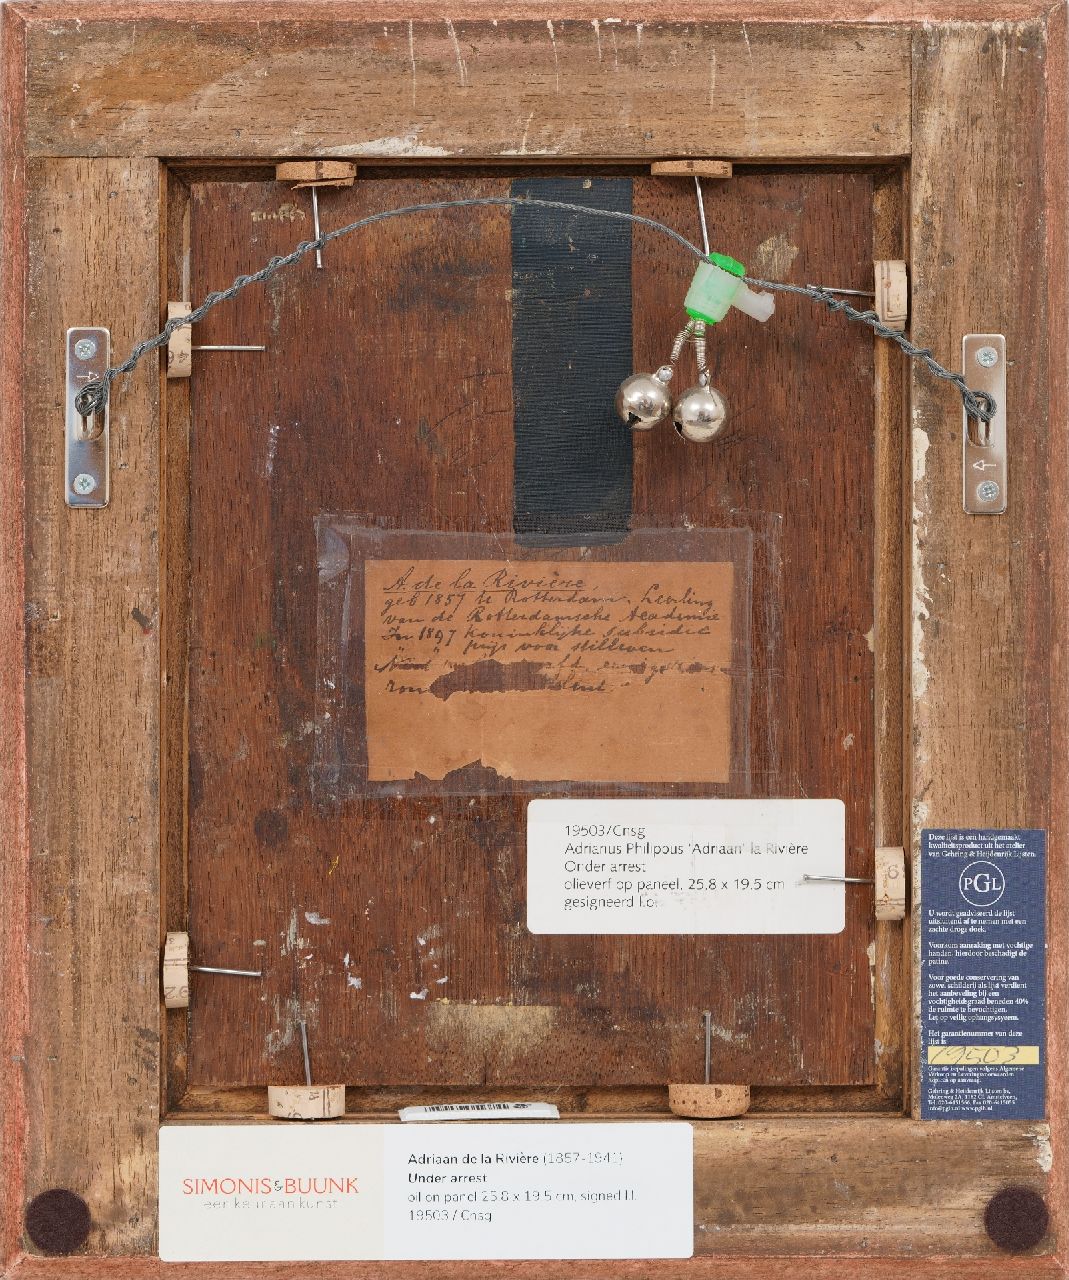 A. de la Rivière
geb 1857 te Rotterdam, Leerling
van de Rotterdamsche Academie
In 1897 koninklijke subsidie
" " prijs voor stilleven
19503/Cnsg
Adrianus Philipous 'Adriaan' la Rivière
Onder arrest
olieverf op paneel, 25,8 x 19,5 cm
gesigneerd l.o.
Deze lijst is een handgemaakt
kwaliteitsproduct uit het atelier
van Gehring & Heijdenrijk Lijsten.
PGL
U wordt geadviseerd de lijst
uitsluitend af te nemen met een
zachte droge doek.
Voorkom aanraking met vochtige
handen, hierdoor beschadigt de
patine.
Voor goede conservering van
zowel schilderij als lijst verdient
het aanbeveling bij een
vochtigheidsgraad beneden 40%
de ruimte te bevochtigen.
Let op veilig ophangsysteem.
Het garantienummer van deze
lijst is
19503
Garantie bepalingen volgens Algemene
SIMONIS & BUUNK
een keur aan kunst
Adriaan de la Rivière (1857-1941)
Under arrest
oil on panel 25.8 x 19.5 cm, signed l.l.
19503 / Cnsg